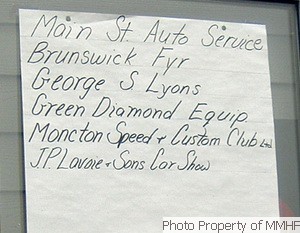 Main St. Auto Service
Brunswick Fyr
George S Lyons
Green Diamond Equip.
Moncton Speed & Custom Club Ltd.
J.P. Lavoie & Sons Car Show
Photo Property of MMHF